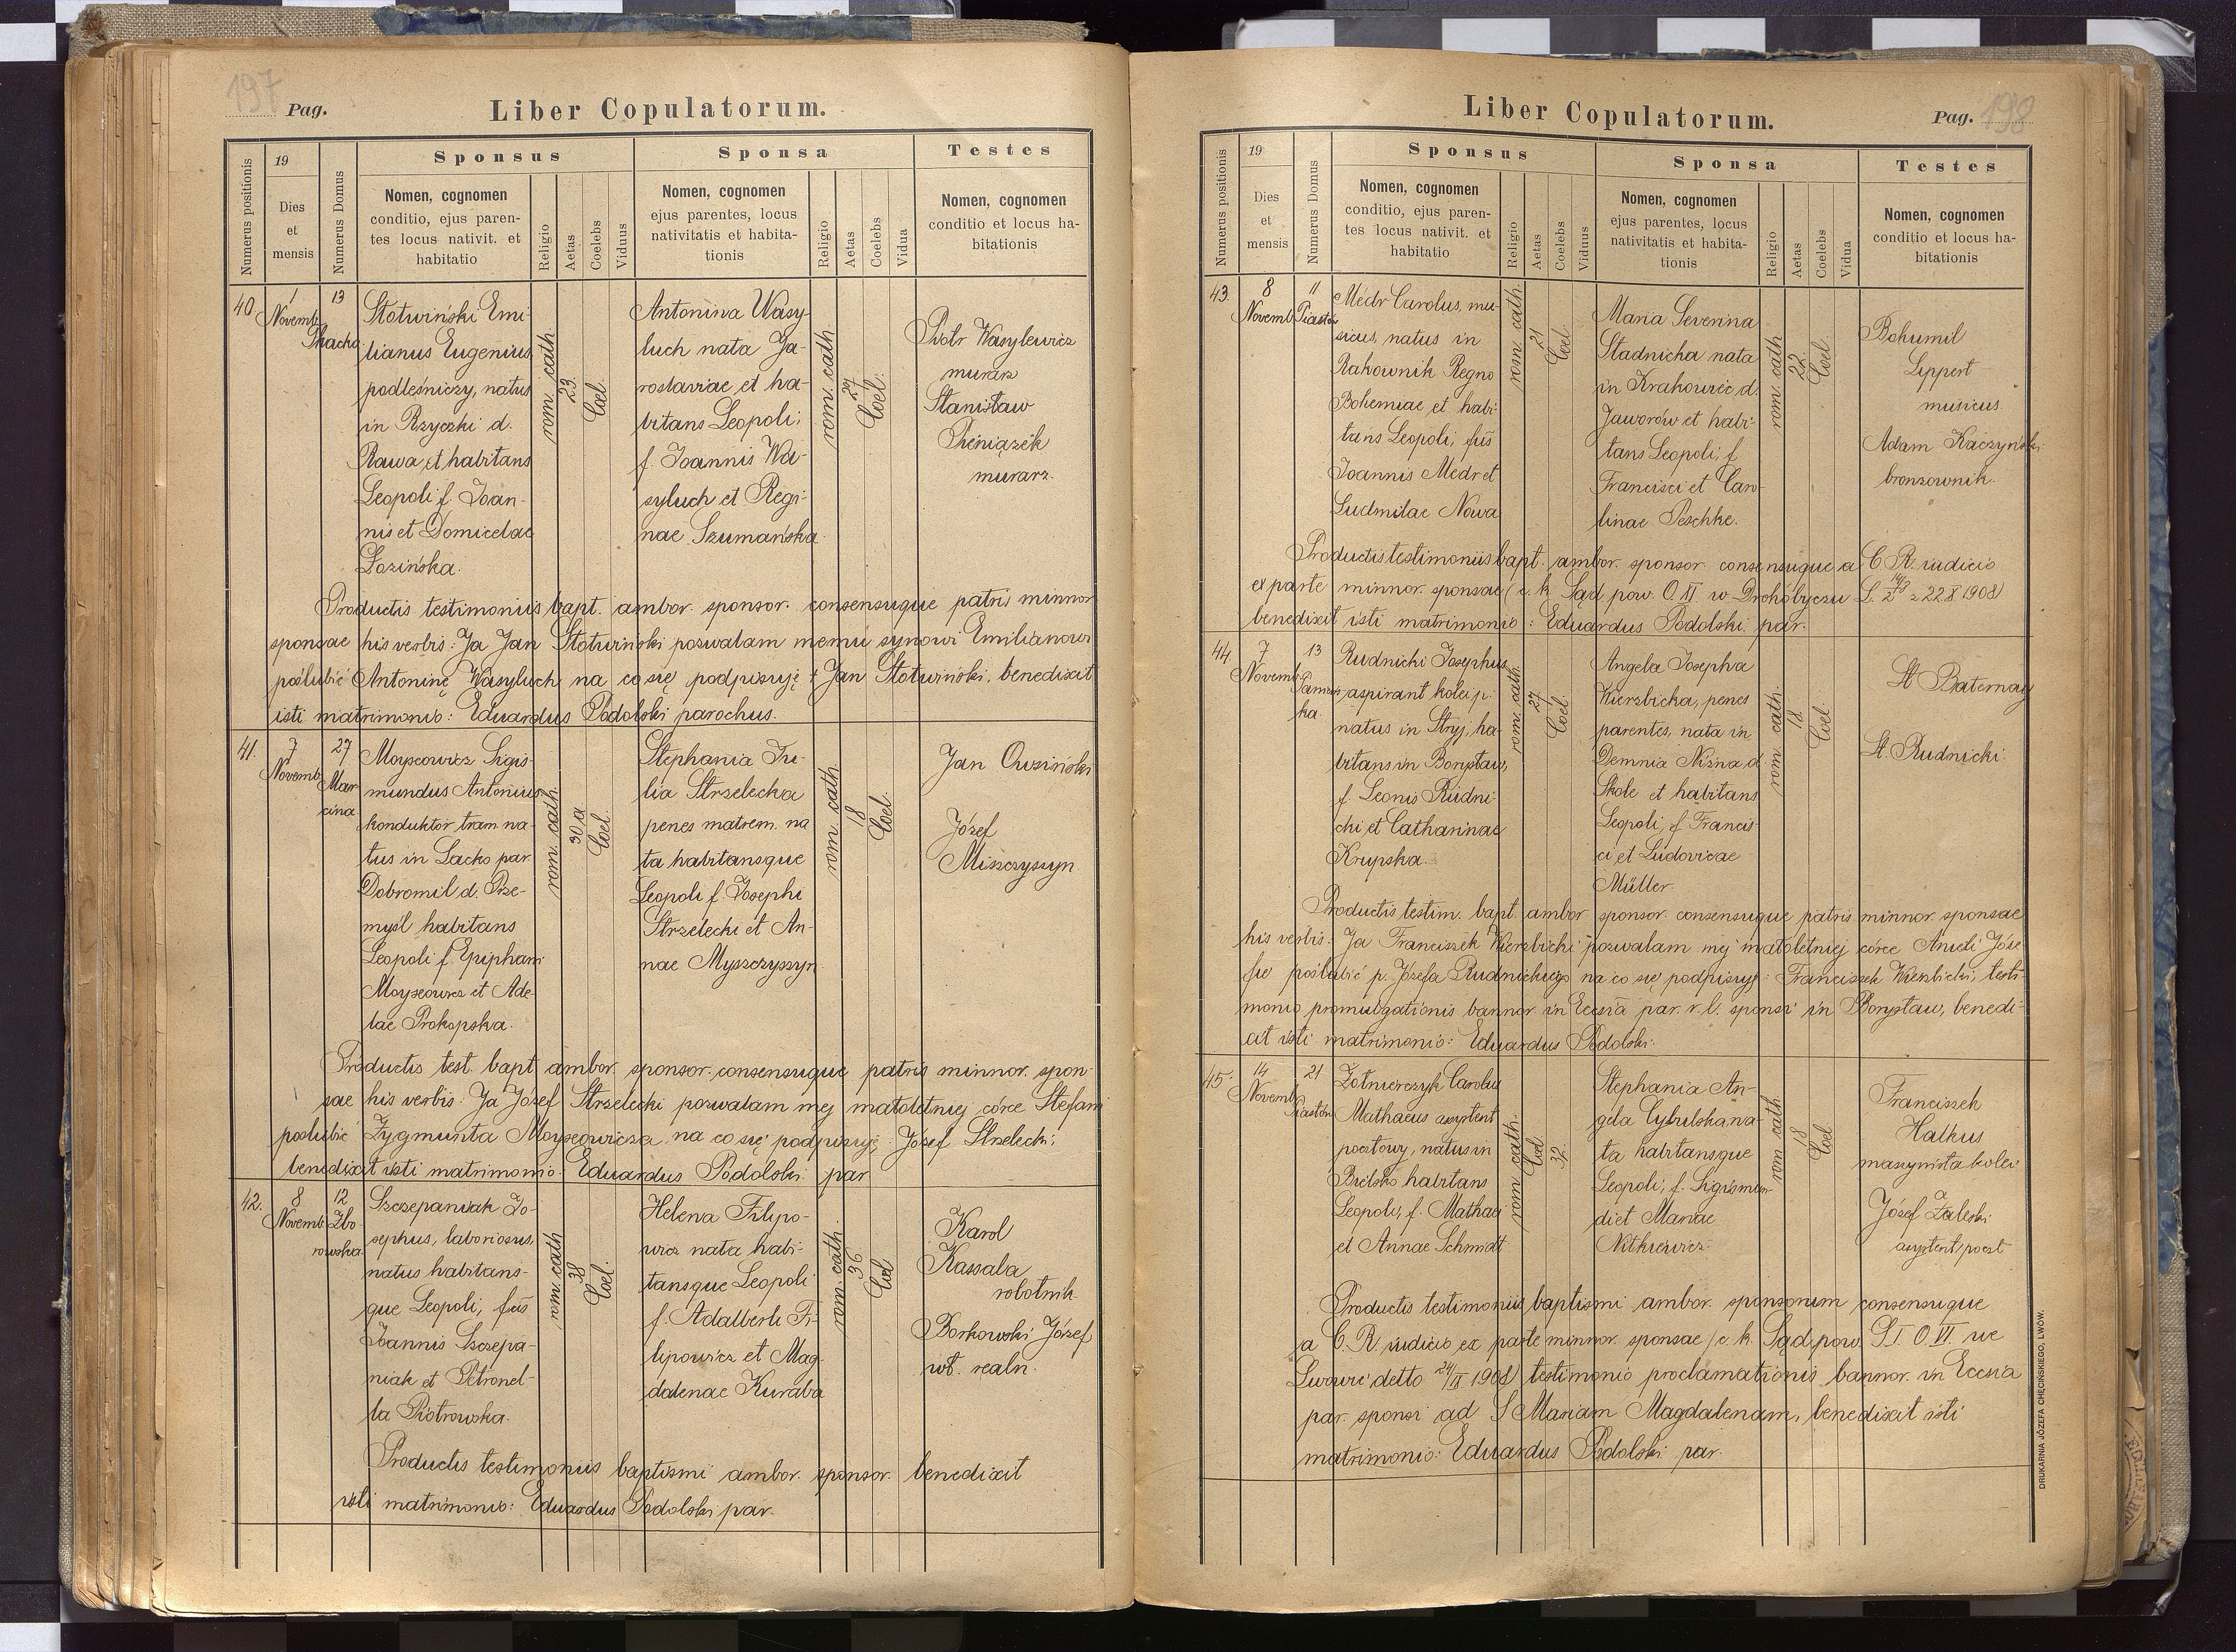 197
Pag.
Liber Copulatorum.
Numerus positionis
19
Dies
et
mensis
Numerus Domus
Sponsus
Nomen, cognomen
conditio, ejus paren-
tes locus nativit. et
habitatio
Religio
Aetas
Coelebs
Viduus
Sponsa
Nomen, cognomen
ejus parentes, locus
nativitatis et habita-
tionis
Religio
Aetas
Coelebs
Vidua
Testes
Nomen, cognomen
conditio et locus ha-
bitationis
40
1
Novemb.
13
Stotwiński Emi-
lianus Eugenius
podleśniczy, natus
in Rzyczki d.
Rawa et habitans
Leopoli f. Joan-
nis et Domicelae
Łozińska.
rom. cath.
23
Coel.
Antonina Wasy-
luch nata Ja-
roslaviae et ha-
bitans Leopoli;
f. Joannis Wa-
syluch et Regi-
nae Szumańska
rom. cath.
Coel.
Piotr Wasylewicz
murarz
Stanisław
Pieniążek
murarz.
Productis testimoniis bapt. ambor. sponsor. consensuque patris minnor
sponsae his verbis: Ja Jan Stotwiński pozwalam memu synowi Emilianowi
poślubić Antoninę Wasyluch na co się podpisuję + Jan Stotwiński, benedixit
isti matrimonio: Eduardus Podolski parochus.
41.
7
Novemb.
27
Mar
cina
Moyseowicz Sigis-
mundus Antonius
konduktor tram. na-
tus in Lacko par.
Dobromil d. Prze-
myśl habitans
Leopoli f. Epiphani
Moyseowicz et Ade-
lae Prokopska.
rom. cath.
30 a
Coel.
Stephania Ju-
lia Strzelecka
penes matrem. na
ta habitansque
Leopoli f. Josephi
Strzelecki et An-
nae Myszczyszyn
rom. cath.
18
Coel.
Jan Owsiński
Józef
Miszczyszyn
Productis test. bapt. ambor. sponsor. consensuque patris minnor. spon-
sae his verbis: Ja Józef Strzelecki pozwalam mej małoletniej córce Stefani
poślubić Zygmunta Moyseowicza, na co się podpisuję: Józef Strzelecki;
benedixit isti matrimonio: Eduardus Podolski par
42.
8
Novemb.
12
Zbo-
rowska
Szczepaniak Jo-
sephus, laboriosus,
natus habitans-
que Leopoli, fus
Joannis Szczepa-
niak et Petronel-
la Piotrowska.
rom. cath
38
Coel.
Helena Filipo-
wicz nata habi-
tansque Leopoli
f. Adalberti Fi-
lipowicz et Mag-
dalenae Kuraba
rom. cath.
36
Coel
Karol
Kassala
robotnik
Borkowski Józef
wł. realn.
Productis testimoniis baptismi ambor. sponsor. benedixit
isti matrimonio: Eduardus Podolski par.
Liber Copulatorum.
Pag.
198
Numerus positionis
19
Dies
et
mensis
Numerus Domus
Sponsus
Nomen, cognomen
conditio, ejus paren-
tes locus nativit. et
habitatio
Religio
Aetas
Coelebs
Viduus
Sponsa
Nomen, cognomen
ejus parentes, locus
nativitatis et habita-
tionis
Religio
Aetas
Coelebs
Vidua
Testes
Nomen, cognomen
conditio et locus ha-
bitationis
43.
8
Novemb.
11
Piastów
Médr Carolus, mu-
sicus, natus in
Rakownik Regno
Bohemiae et habi-
tans Leopoli, fus
Joannis Medr et
Ludmilae Nowa
rom. cath.
21
Coel.
Maria Severina
Stadnicka nata
in Krakowiec d.
Jaworów et habi-
tans Leopoli; f
Francisci et Caro-
linae Peschke.
rom. cath.
22
Coel.
Bohumil
Lippert
musicus.
Adam Kaczyński
bronzownik.
Productis testimoniis bapt. ambor. sponsor. consensuque a C. R. iudicio
ex parte minnor. sponsae (c. k. Sąd pow. O. II w Drohobyczu z 22 X 1908)
benedixit isti matrimonio: Eduardus Podolski. par.
44.
7
Novemb.
13
Rudnicki Josephus
aspirant kolei p.
natus in Stryj, ha-
bitans in Borysław,
f. Leonis Rudni-
cki et Catharinae
Krupska.
rom. cath.
27
Coel.
Angela Josepha
Wierzbicka, penes
parentes, nata in
Demnia Niżna d.
Skole et habitans
Leopoli, f. Francis-
ci et Ludovicae
Müller.
rom cath.
18.
Coel.
St Baternay
St. Rudnicki.
Productis testim. bapt. ambor sponsor. consensuque patris minnor. sponsae
his verbis: Ja Franciszek Wierzbicki pozwalam mej małoletniej córce Anieli Józe
fie poślubić p. Józefa Rudnickiego na co się podpisuję: Franciszek Wierzbicki, testi-
monio promulgationis bannor. in Eccsia par. r. l. sponsi in Borysław, benedi-
xit isti matrimonio: Eduardus Podolski.
45.
14
Novemb.
21
Piastów
Żołnierczyk Carolus
Mathaeus asystent
pocztowy, natus in
Bielsko habitans
Leopoli, f. Mathaei
et Annae Schmidt
rom. cath.
Coel
32.
Stephania An-
gela Cybulska na-
ta habitansque
Leopoli, f. Sigismun-
di et Mariae
Nitkiewicz.
rom cath
18
Coel
Franciszek
Halkus
maszynista kolei
Józef Zaleski
asystent poczt
Productis testimoniis baptismi ambor. sponsorum consensuque
a C. R. iudicio ex parte minnor. sponsae (c. k. Sąd pow. S. I. O. VI. we
Lwowie detto 24/IX 1908) testimonio proclamationis bannor. in Eccsia
par. sponsi ad S Mariam Magdalenam, benedixit isti
matrimonio: Eduardus Podolski par.
DRUKARNIA JÓZEFA CHĘCIŃSKIEGO, LWÓW.